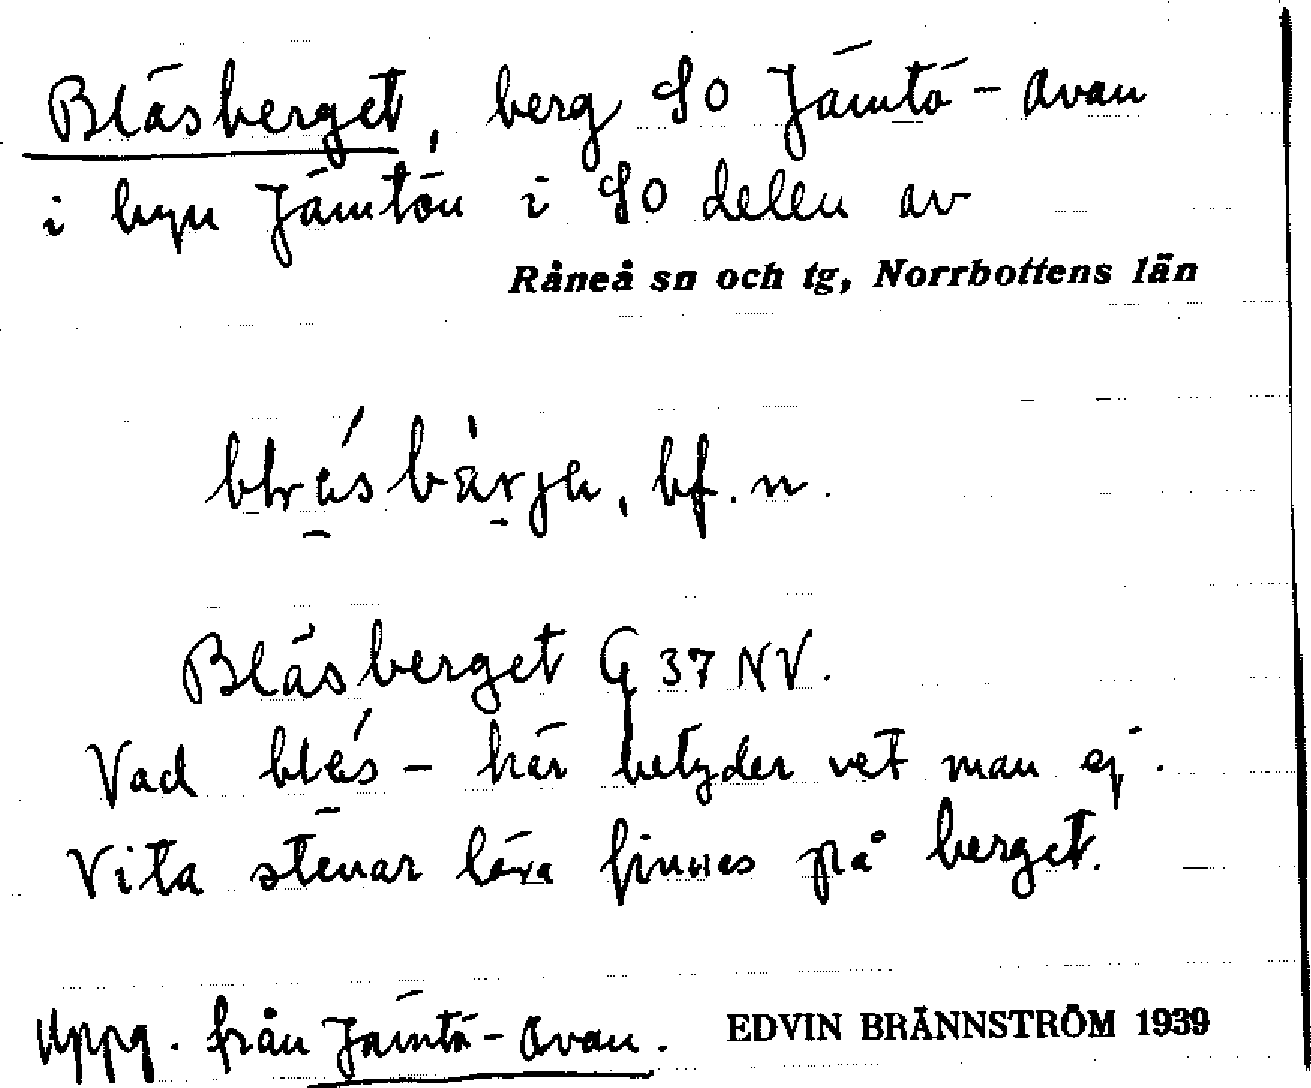 Bläsberget, berg SO Jämtö-Avan
i byn Jämtön i SO delen av
Råneå sn och tg, Norrbottens län
bf. n.
Bläsberget G 37 NV.
Vad bläs- här betyder vet man ej.
Vita stenar lära finnas på berget.
Uppg. från Jämtö-Avan. EDVIN BRÄNNSTRÖM 1939